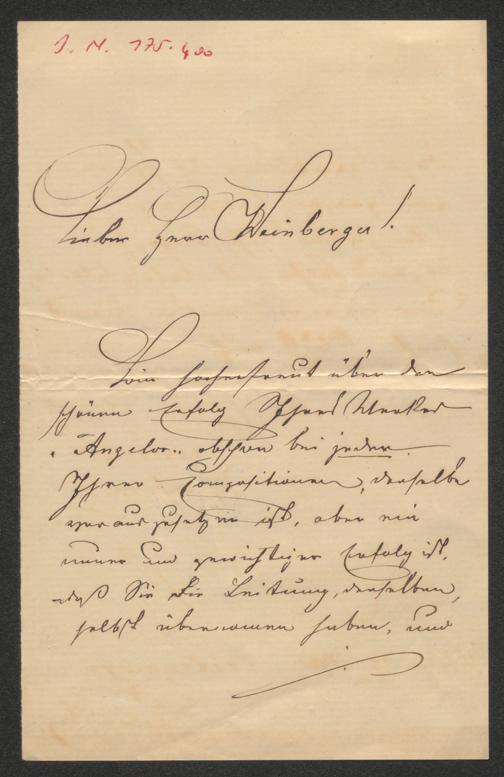 J. N. 175.400
Lieber Herr Weinberger!
Bin hocherfreut über den
schönen Erfolg Ihres Werkes
„Angelor„ obschon bei jeder
Ihrer Compositionen, derselbe
vorauszusetzen ist, aber ein
neuer und gewichtiger Erfolg ist,
daß Sie die Leitung, derselben,
selbst übernommen haben, und